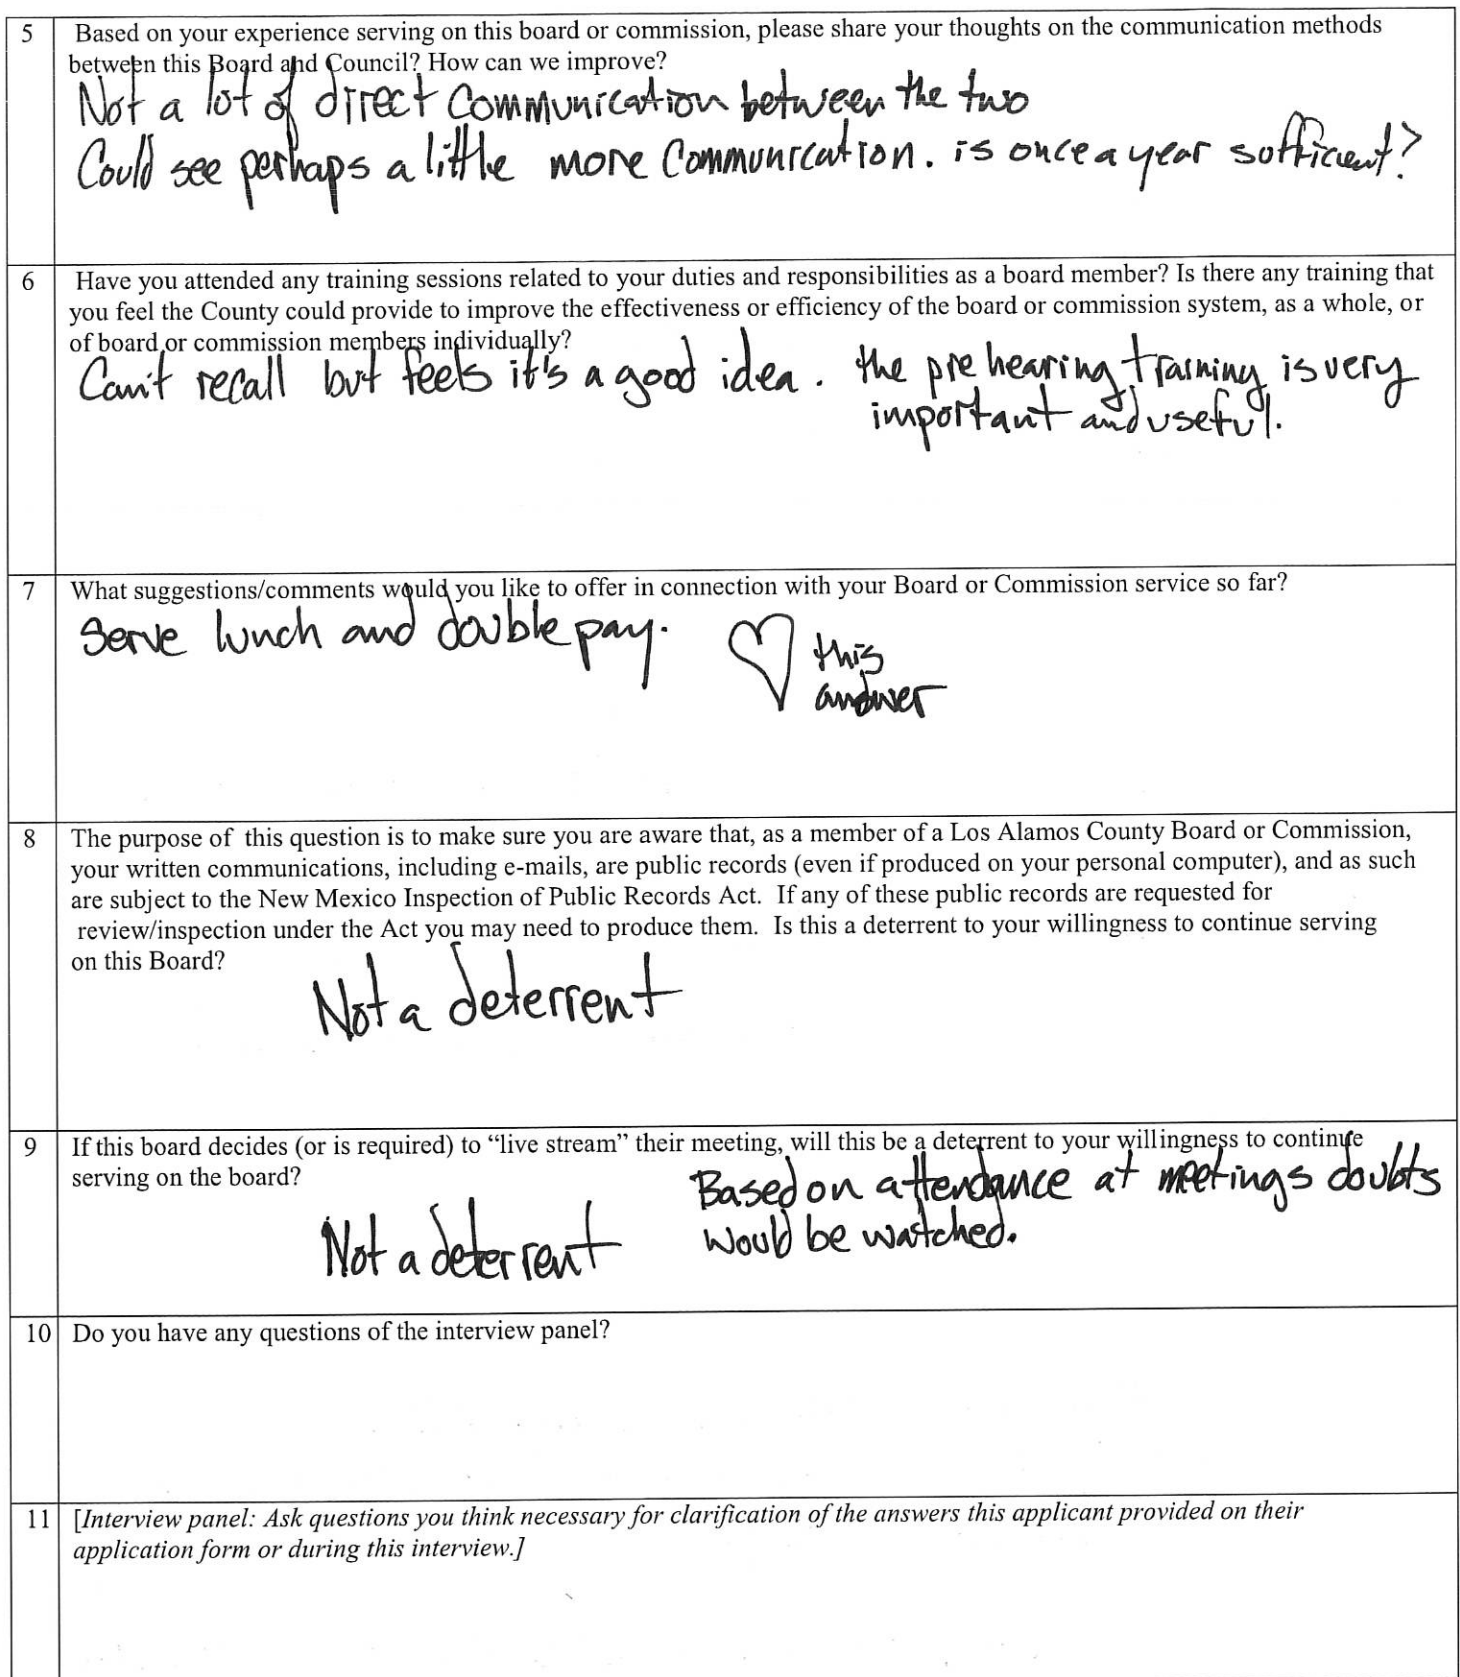 5 Based on your experience serving on this board or commission, please share your thoughts on the communication methods
between this Board and Council? How can we improve?
Not a lot of direct Communication between the two
Could see perhaps a little more Communication. is once a year sufficient?
6 Have you attended any training sessions related to your duties and responsibilities as a board member? Is there any training that
you feel the County could provide to improve the effectiveness or efficiency of the board or commission system, as a whole, or
of board or commission members individually?
Can't recall but feels it's a good idea. the pre hearing training is very
important and useful.
7 What suggestions/comments would you like to offer in connection with your Board or Commission service so far?
Serve lunch and double pay. ♡ this
answer
8 The purpose of this question is to make sure you are aware that, as a member of a Los Alamos County Board or Commission,
your written communications, including e-mails, are public records (even if produced on your personal computer), and as such
are subject to the New Mexico Inspection of Public Records Act. If any of these public records are requested for
review/inspection under the Act you may need to produce them. Is this a deterrent to your willingness to continue serving
on this Board?
Not a deterrent
9 If this board decides (or is required) to “live stream” their meeting, will this be a deterrent to your willingness to continue
serving on the board?
Based on attendance at meetings doubts
would be watched.
Not a deterrent
10 Do you have any questions of the interview panel?
11 [Interview panel: Ask questions you think necessary for clarification of the answers this applicant provided on their
application form or during this interview.]